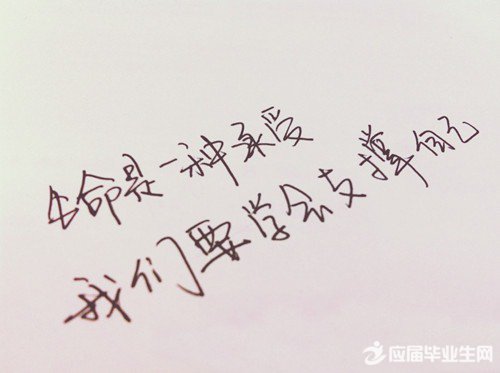 生命是一种承受
我们要学会支撑自己
应届毕业生网